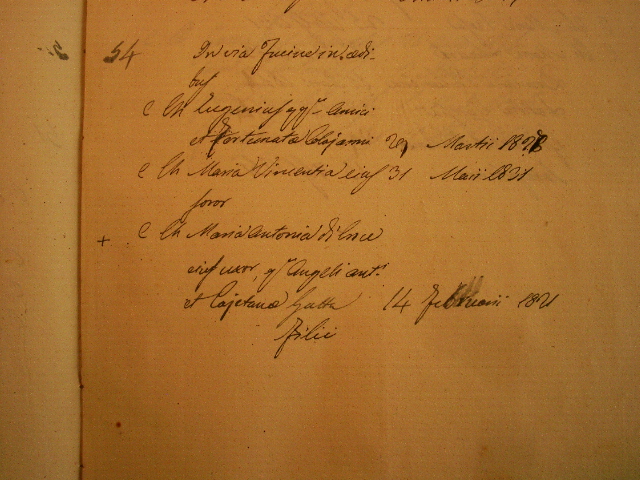 54 In via Fucine in ædi-
bus
C Ch Eugenius qq.m Amici
et Fortunata Colajanni 29 Martii 18
C Ch Maria Vincentia eius 31 Maii 1831
soror
+ C Ch Maria Antonia di
eius uxor, q.m Angeli ant.i
et Cajetana Gatta 14 Februarii 1821
Filii